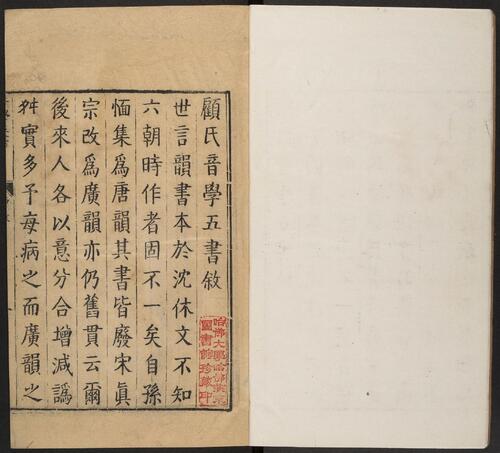 顧氏音學五書敘
世言韻書本於沈休文不知
六朝時作者固不一矣自孫
愐集爲唐韻其書皆廢宋眞
宗改爲廣韻亦仍舊貫云爾
後來人各以意分合增減譌
舛實多予每病之而廣韻之
哈佛大學哈佛燕京
圖書館珍藏印